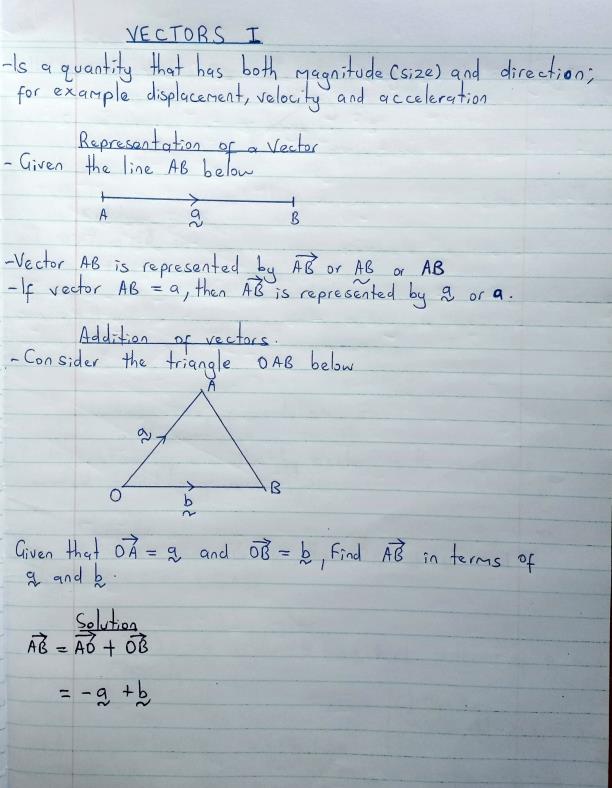 VECTORS I
-Is a quantity that has both magnitude (size) and direction;
for example displacement, velocity and acceleration
Representation of a Vector
- Given the line AB below
A a̰ B
-Vector AB is represented by A⃗B⃗ or A̰B̰ or AB
-If vector AB = a, then A⃗B⃗ is represented by a̰ or a.
Addition of vectors.
- Consider the triangle OAB below
A
a̰
O B
b̰
Given that O⃗A⃗ = a̰ and O⃗B⃗ = b̰, Find A⃗B⃗ in terms of
a̰ and b̰.
Solution
A⃗B⃗ = A⃗O⃗ + O⃗B⃗
= -a̰ + b̰